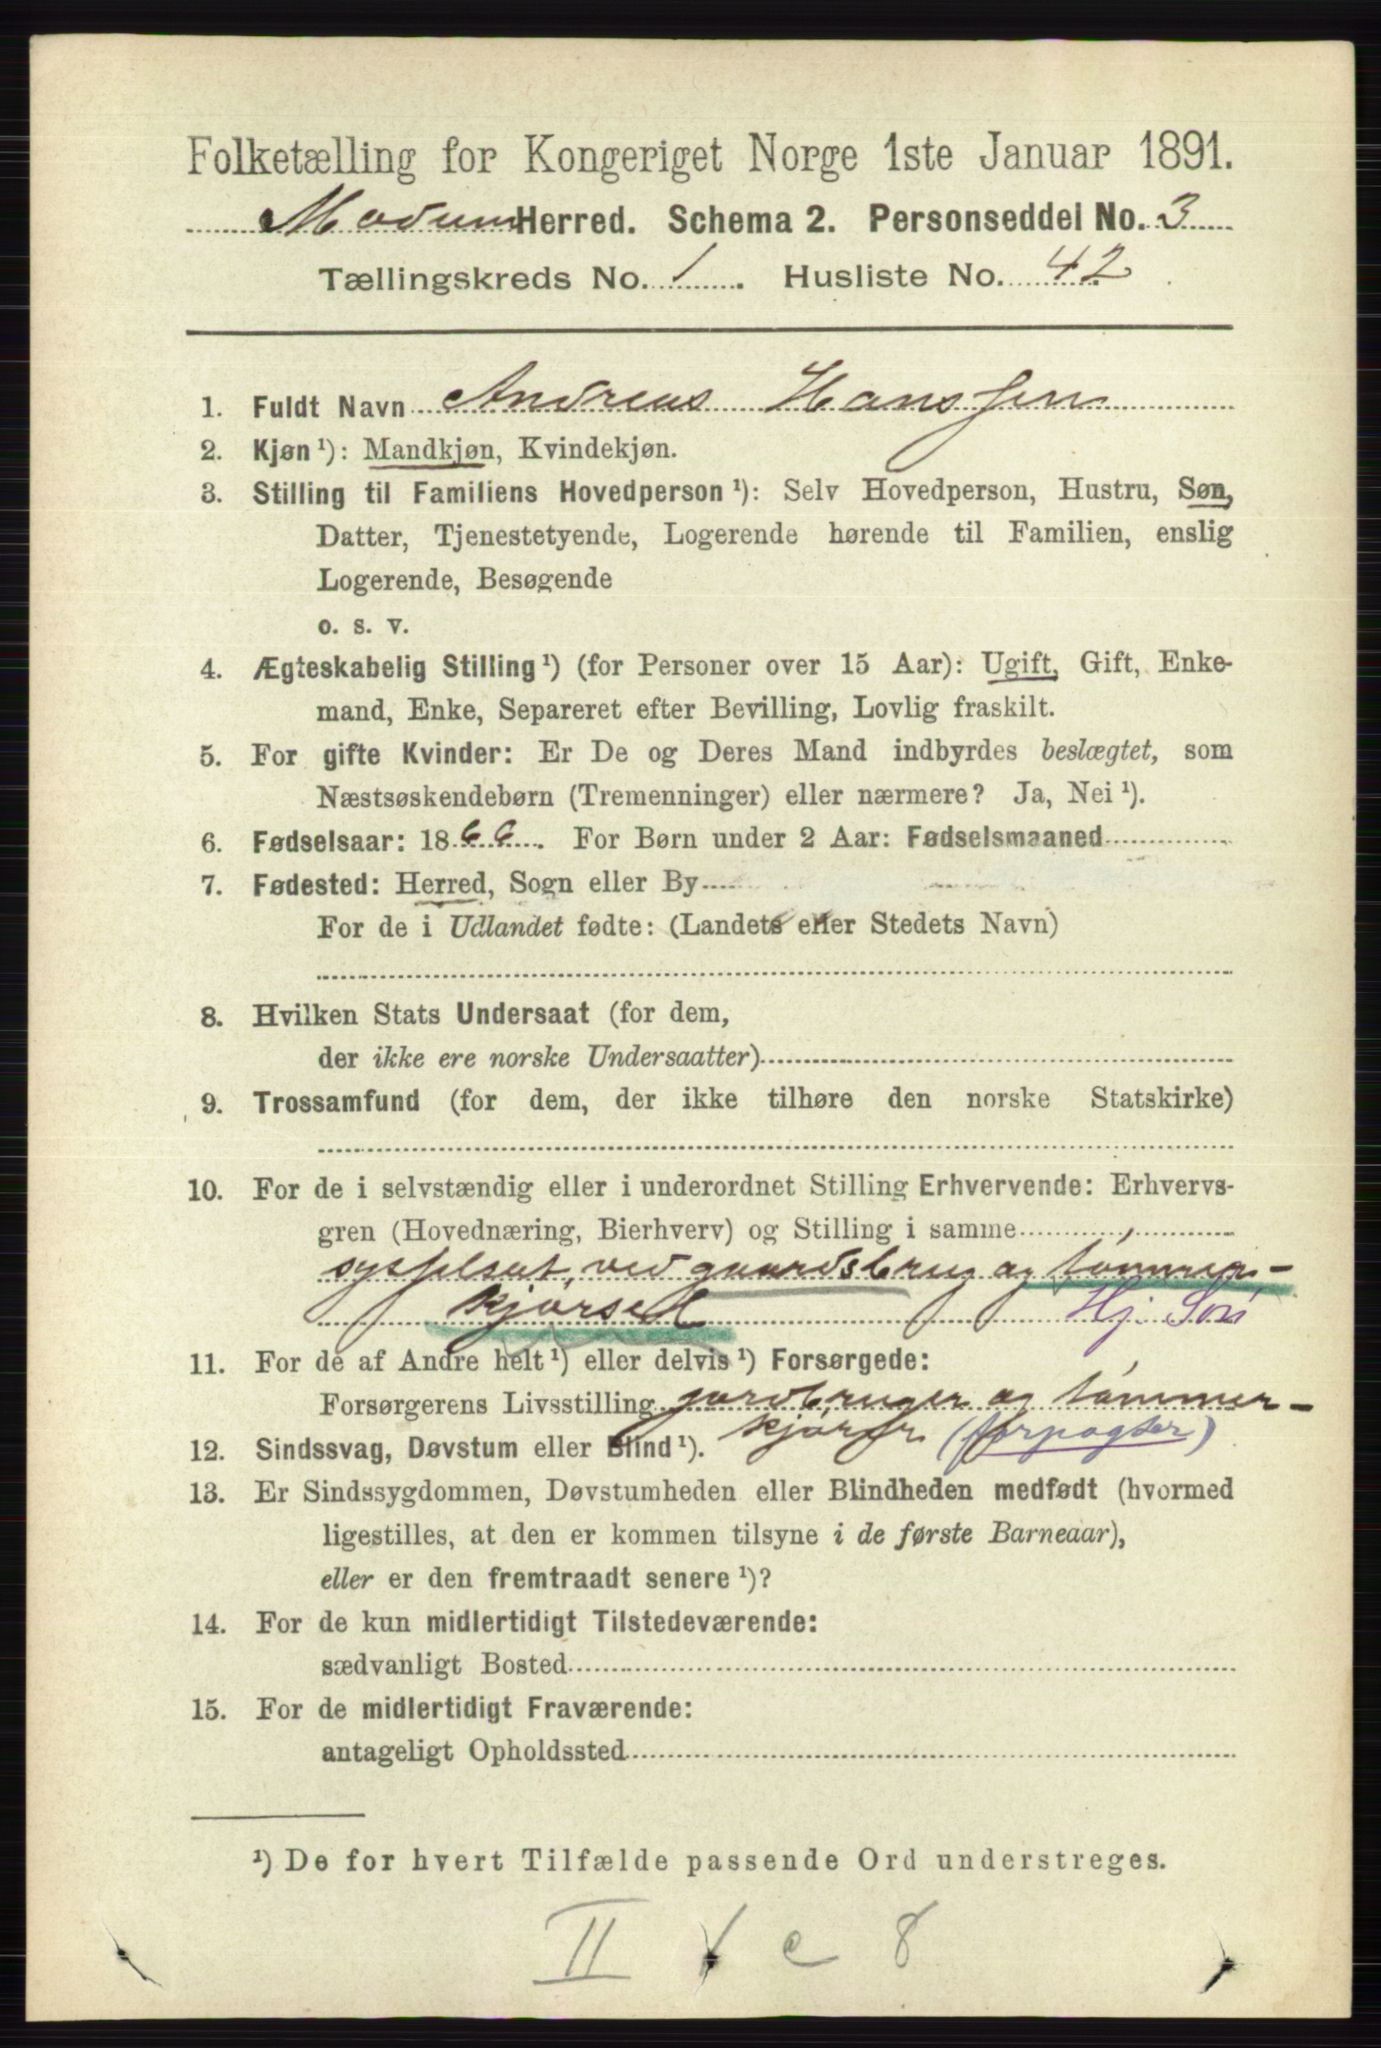 Folketælling for Kongeriget Norge 1ste Januar 1891.
Modum Herred. Schema 2. Personseddel No. 3
Tællingskreds No. 1. Husliste No. 42
1. Fuldt Navn Andreas Hanssen
2. Kjøn ¹): Mandkjøn, Kvindekjøn.
3. Stilling til Familiens Hovedperson ¹): Selv Hovedperson, Hustru, Søn,
Datter, Tjenestetyende, Logerende hørende til Familien, enslig
Logerende, Besøgende
o. s. v.
4. Ægteskabelig Stilling ¹) (for Personer over 15 Aar): Ugift, Gift, Enke-
mand, Enke, Separeret efter Bevilling, Lovlig fraskilt.
5. For gifte Kvinder: Er De og Deres Mand indbyrdes beslægtet, som
Næstsøskendebørn (Tremenninger) eller nærmere? Ja, Nei ¹).
6. Fødselsaar: 1866. For Børn under 2 Aar: Fødselsmaaned
7. Fødested: Herred, Sogn eller By
For de i Udlandet fødte: (Landets eller Stedets Navn)
8. Hvilken Stats Undersaat (for dem,
der ikke ere norske Undersaatter)
9. Trossamfund (for dem, der ikke tilhøre den norske Statskirke)
10. For de i selvstændig eller i underordnet Stilling Erhvervende: Erhvervs-
gren (Hovednæring, Bierhverv) og Stilling i samme
sysselsat, ved gaardsbrug og tømmer-
kjørsel Hj. Søn
11. For de af Andre helt ¹) eller delvis ¹) Forsørgede:
Forsørgerens Livsstilling gardbruger og tømmer-
kjører (forpagter)
12. Sindssvag, Døvstum eller Blind ¹).
13. Er Sindssygdommen, Døvstumheden eller Blindheden medfødt (hvormed
ligestilles, at den er kommen tilsyne i de første Barneaar),
eller er den fremtraadt senere ¹)?
14. For de kun midlertidigt Tilstedeværende:
sædvanligt Bosted
15. For de midlertidigt Fraværende:
antageligt Opholdssted
¹) De for hvert Tilfælde passende Ord understreges.
II e 8